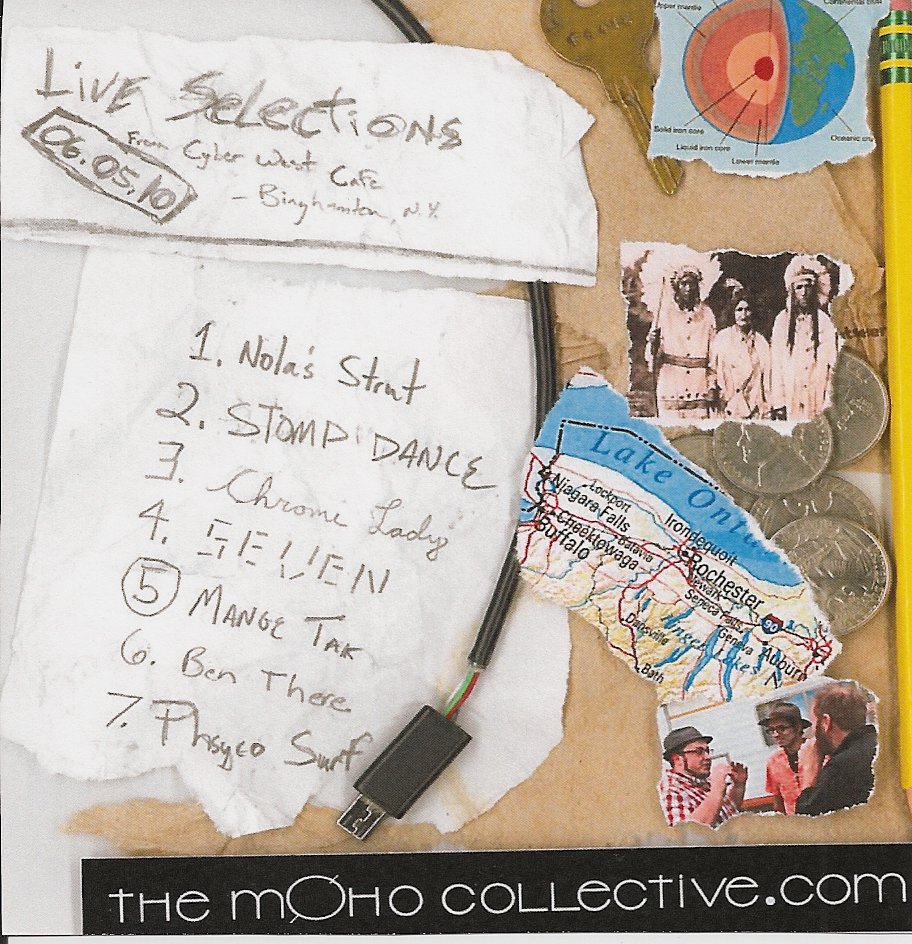 Live Selections
06.05.10
From Cyber West Cafe
- Binghamton, N.Y.
1. Nola's Strut
2. STOMP DANCE
3. Chromi Lady
4. SEVEN
5 MANGE TAK
6. Ben There
7. Phsyco Surf
Upper mantle
Solid iron core
Liquid iron core
Lower mantle
Oceanic
Lake Ont
Lockport
Niagara Falls
Irondequoit
Cheektowaga
Batavia
Buffalo
Rochester
Newark
Seneca Falls
90
Geneva
Auburn
Dansville
Finger Lakes
Bath
THE MØHO COLLECTIVE.COM